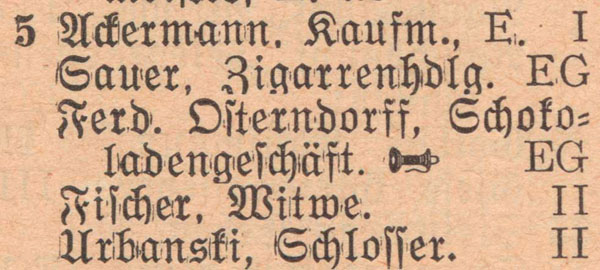 5 Ackermann, Kaufm., E. I
Sauer, Zigarrenhdlg. EG
Ferd. Osterndorff, Schoko-
ladengeschäft. EG
Fischer, Witwe. II
Urbanski, Schlosser. II